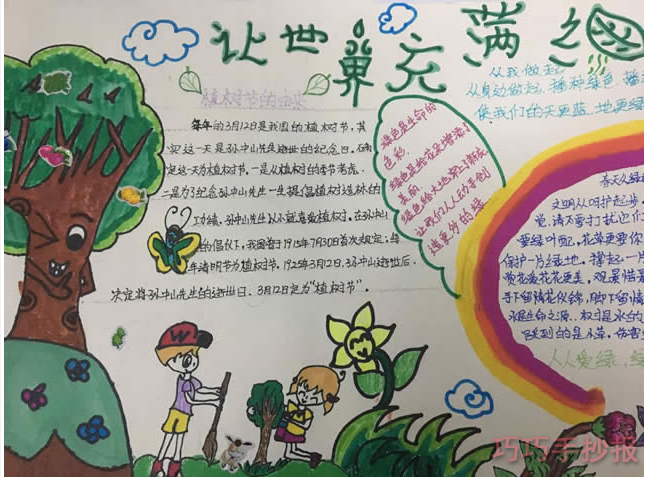 让世界充满绿
植树节的由来
每年的3月12日是我国的植树节，其
实这一天是孙中山先生逝世的纪念日。在确
定这一天为植树节。一是从植树的季节考虑，
二是为了纪念孙中山先生一生提倡植树造林的
功绩。孙中山先生从小就喜爱植树。在孙中山
的倡仪下，我国曾于1915年7月30日首次规定：每
年清明节为植树节。1925年3月12日，孙中山先生逝世后，
决定将孙中山先生的逝世日、3月12日定为“植树节”。
绿色是生命的
色彩
绿色是给花草增添了
美丽
绿色给大地带来了新衣
让我们人人动手创
造更多的绿
从我做起
从身边做起，播种绿色，播
使我们的天更蓝，地更绿
文明从呵护起步，
觉，请不要打扰它们
要绿叶圆，花草更要你
保护一片绿地，撑起一片
赏花爱花花更美，观景惜景
手下留情花似锦，脚下留情
水是生命之源，树是水的
人人爱绿，绿
W
巧巧手抄报